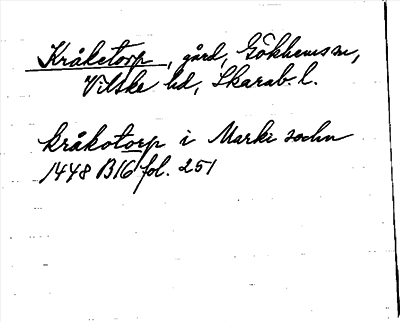 Kråketorp, gård, Gökhems sn,
Vilske hd, Skarab. l.
kråkotorp i Marke sochn
1448 B16 fol. 251